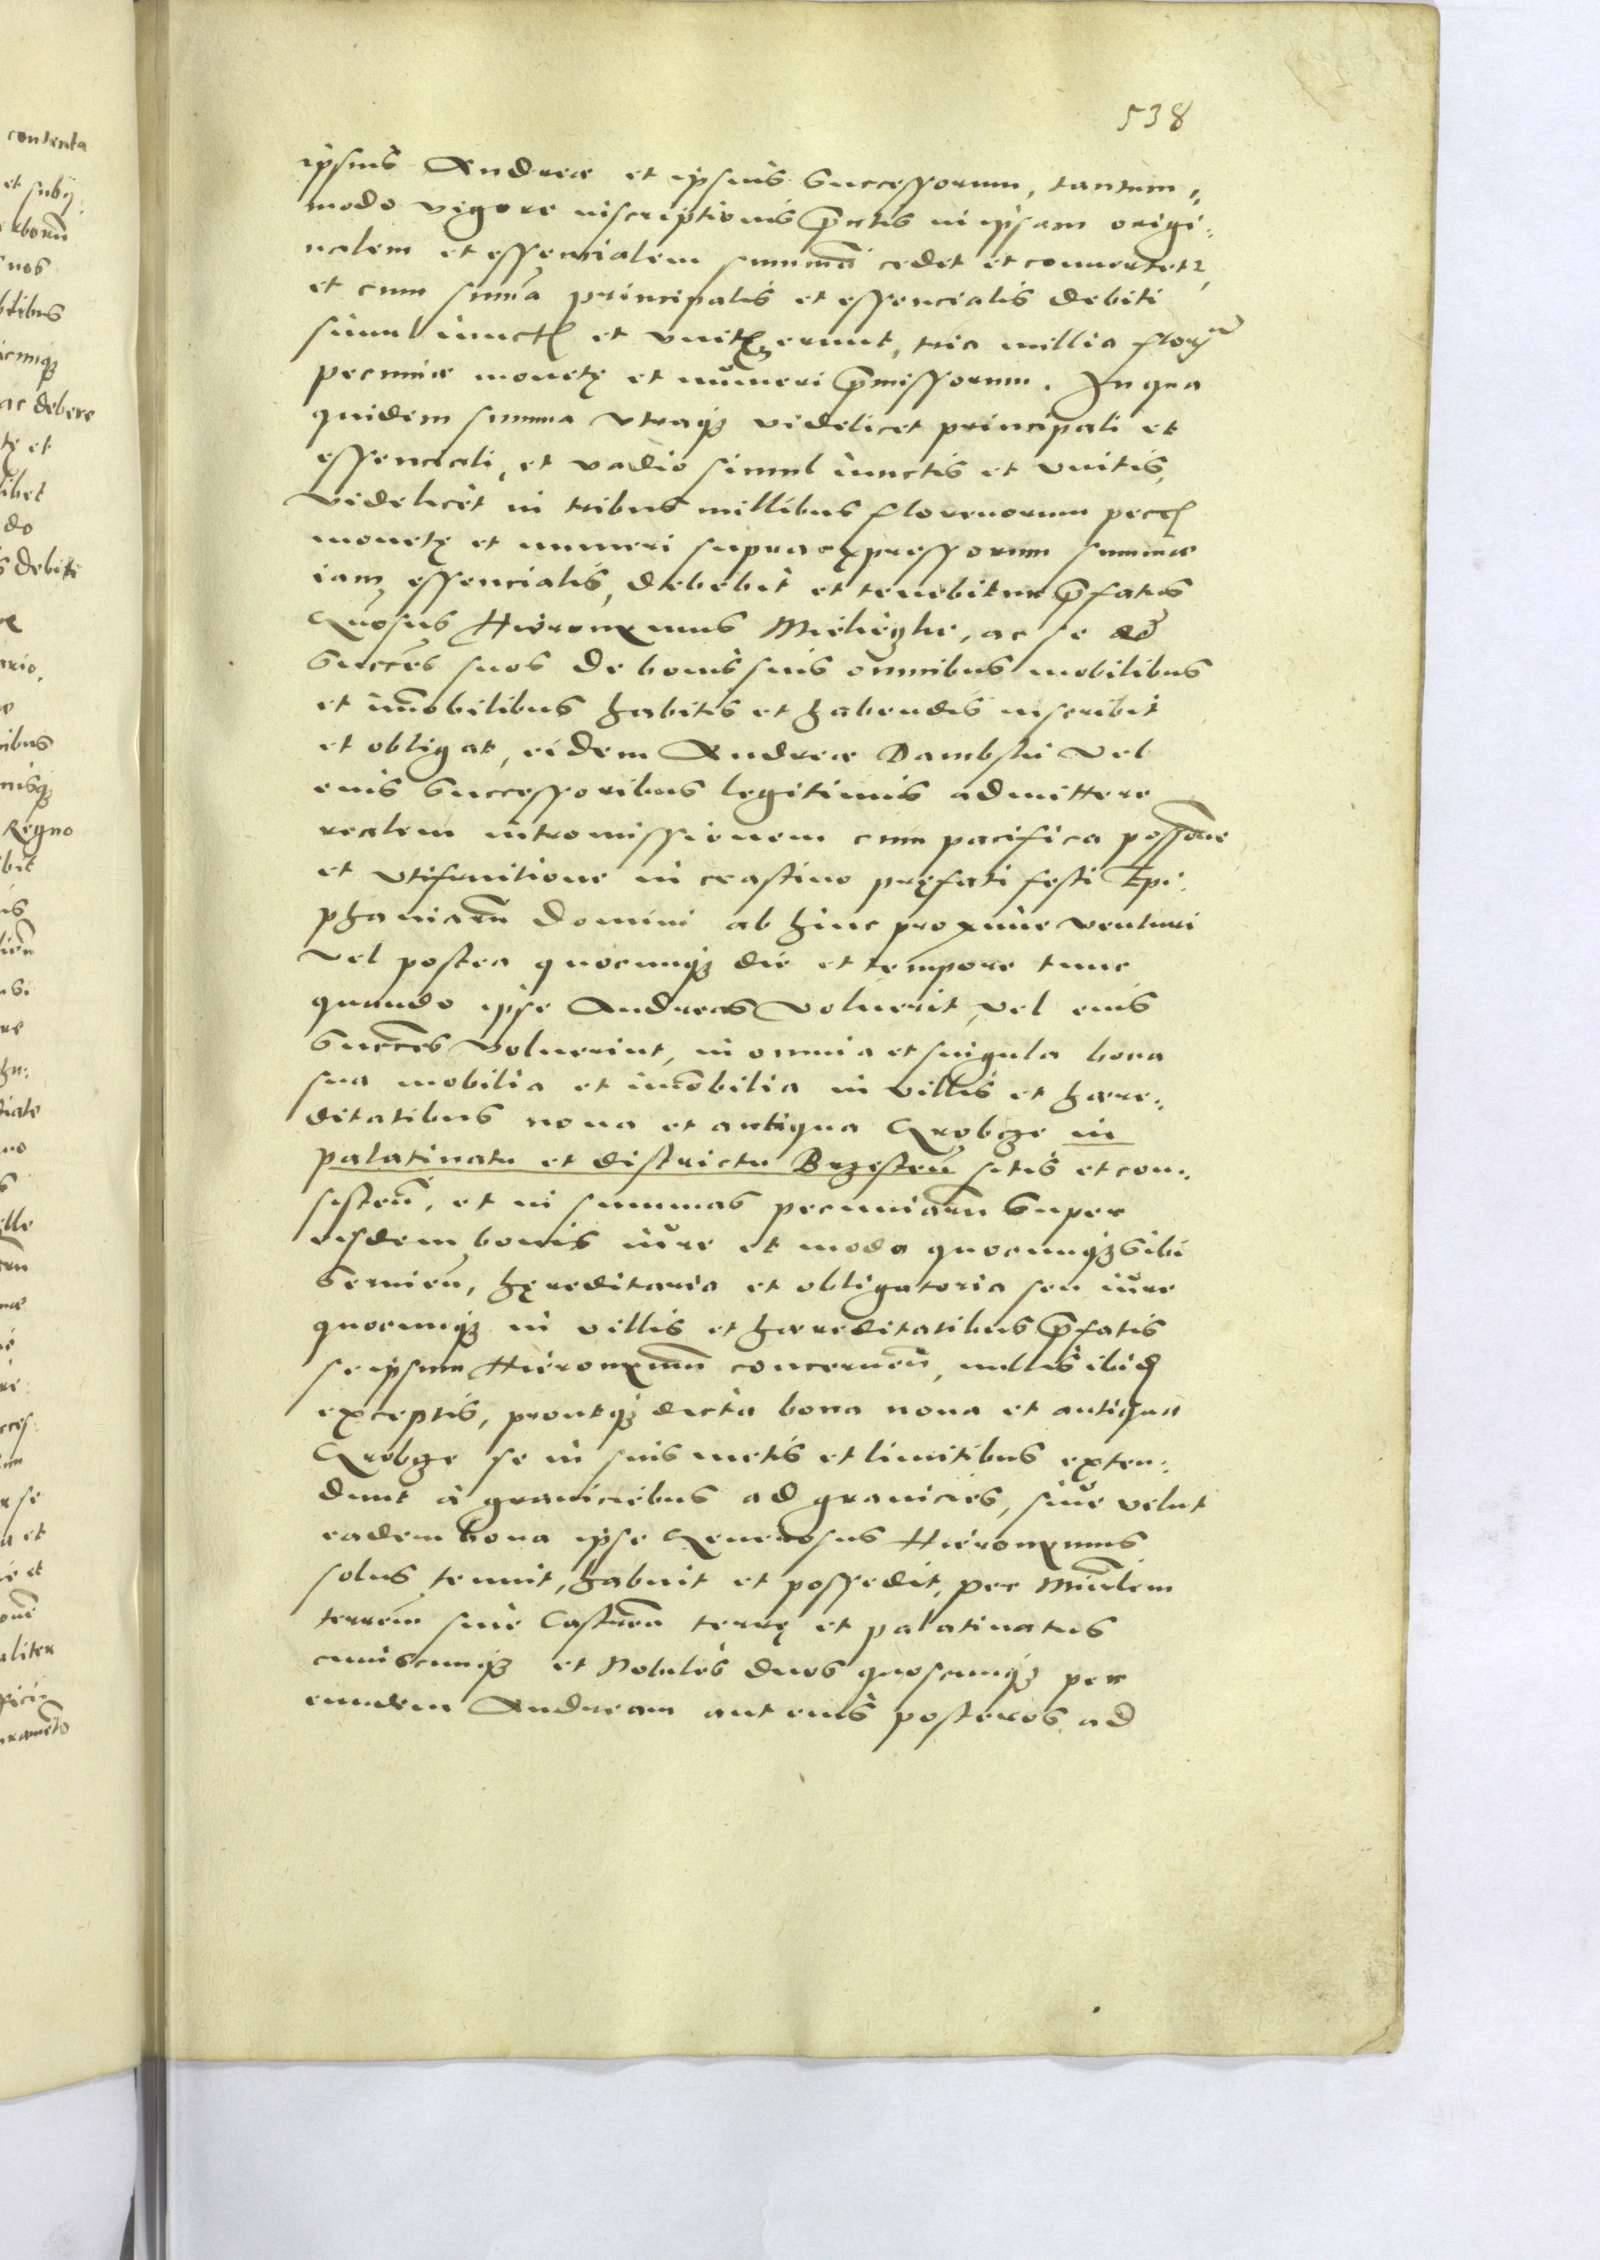 538
ipsius Andreæ et ipsius Successorum, tantum=
modo vigore inscriptionis p̄ntis in ipsam origi=
nalem et essencialem summā cedet et conuertet᷑,
et cum summa principalis et essencialis debiti
simul iunct et vnit erunt, tria millia flor
pecuniæ monetę et numeri p̄missorum. In qua
quidem summa vtraqꝫ videlicet principali et
essenciali, et vadio simul iunctis et vnitis,
videlicet in tribus millibus florenorum pec
monetę et numeri supraexpressorum summæ
iam essencialis, debebit et tenebitur p̄fatus
Gn̄osus Hieronymus Mieliezhe, ac se ac
Succes̄ suos de bonis suis omnibus mobilibus
et im̄obilibus habitis et habendis inscribit
et obligat, eidem Andreæ Dambski vel
eius Successoribus legitimis admittere
realem intromissionem cum pacifica possione
et vtifruitione in crastino pręfati festi Epi=
phaniarū Domini ab hinc proxime venturi
vel postea quocunqꝫ die et tempore tunc
quando ipse Andreas voluerit, vel eius
Succes̄ voluerint, in omnia et singula bona
sua mobilia et im̄obilia in villis et hære=
ditatibus noua et antiqua Grobcze in
palatinatu et districtu Brzesteñ sitis et con=
sisteñ, et in summas pecuniarū Super
eisdem bonis iure et modo quocunqꝫ Sibi
Seruieñ, hęreditaria et obligatoria seu iure
quocunqꝫ in villis et hæreditatibus p̄fatis
se ipsum Hieronymū concerneñ, nullis ibid
exceptis, proutqꝫ dicta bona noua et antiqua
Grobcze se in suis metis et limitibus exten=
dunt à graniciebus ad granicies, siue velut
eadem bona ipse Generosus Hieronymus
solus tenuit, habuit et possedit, per Min̄lem
terreñ siue Castreñ terrę et palatinatus
cuiuscunqꝫ et Nobiles duos quoscunqꝫ per
eundem Andream aut eius posteros ad
contenta
et subÿ
nos
ac debere
tę et
do
debiti
Regno